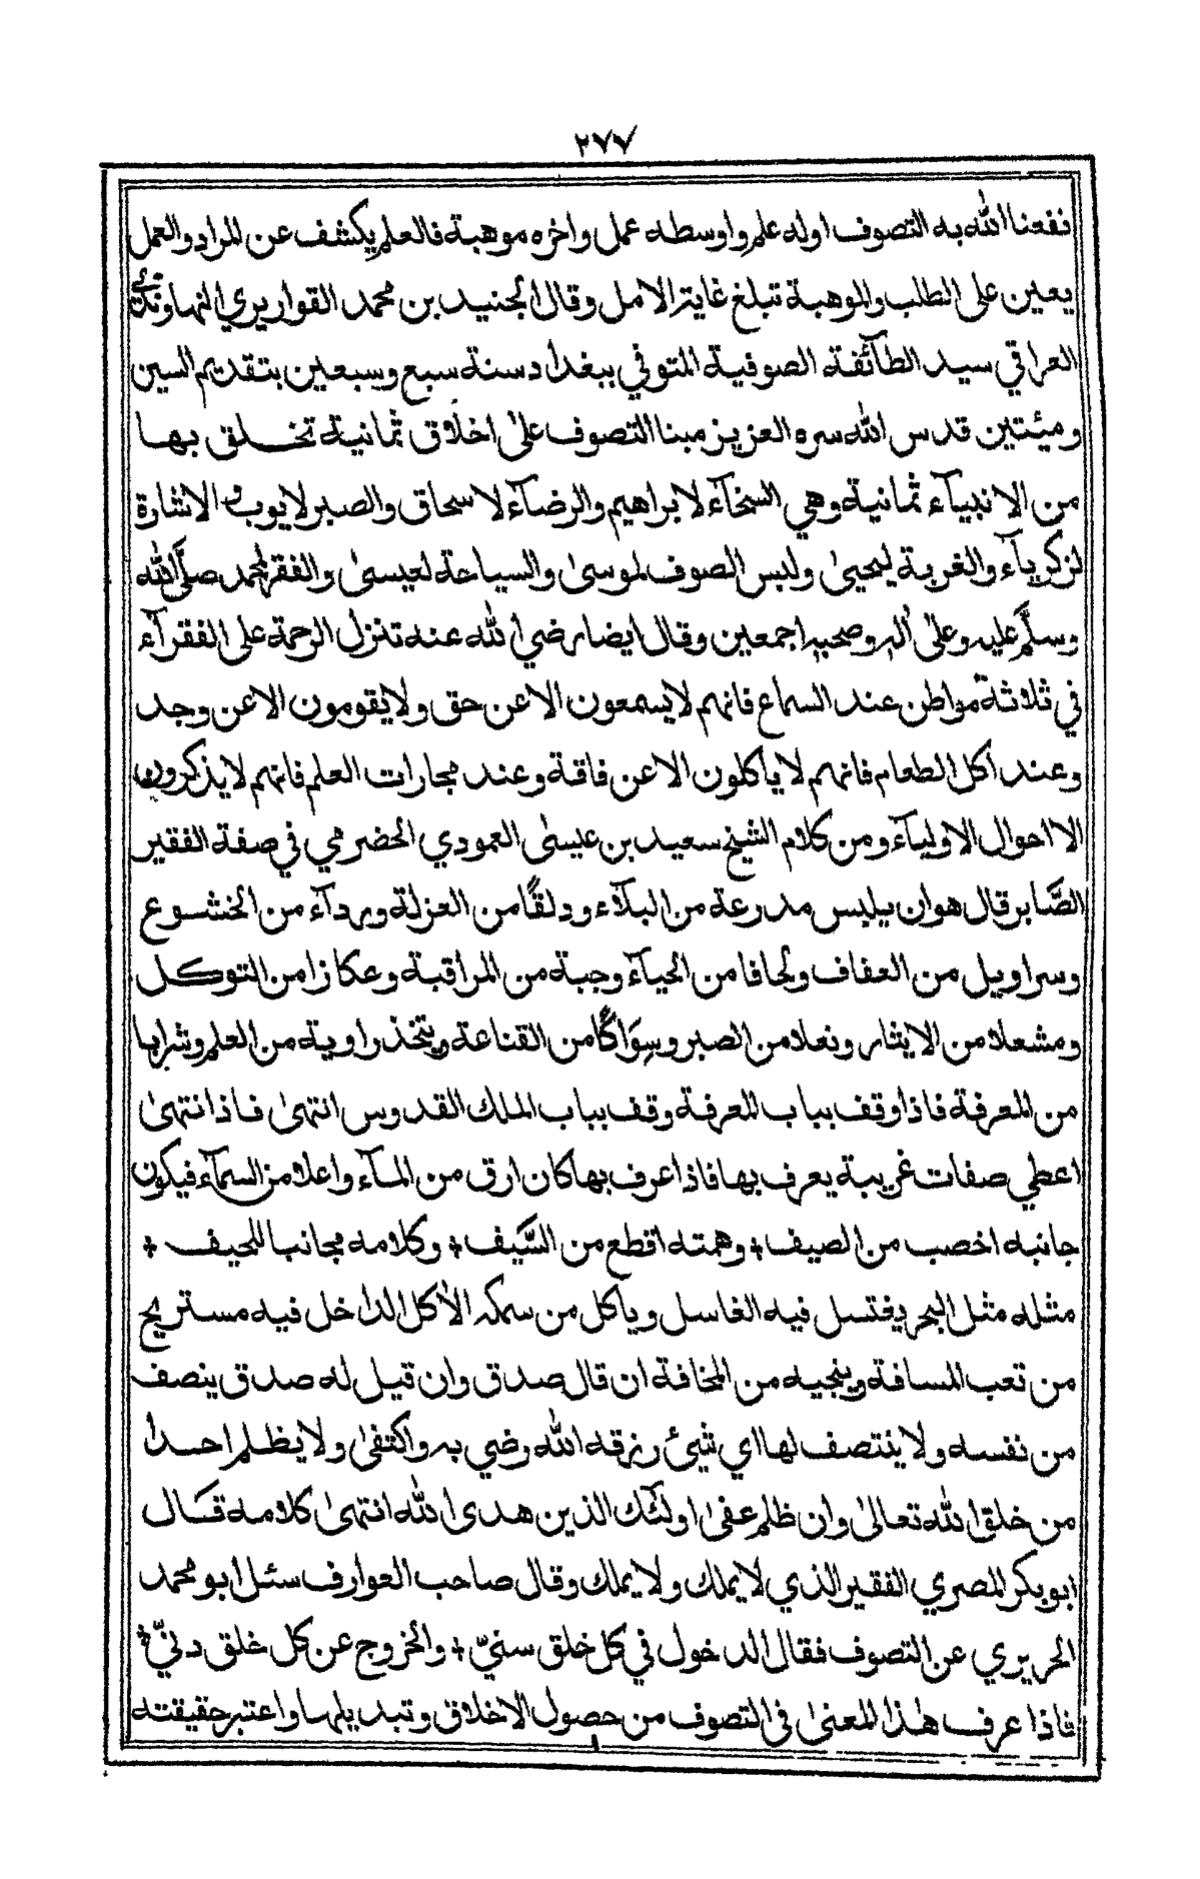 ٢٧٧
نفعنا الله به التصوف اوله علم واوسطه عمل واخره موهبة فالعلم يكشف عن المراد والعمل
يعين على الطلب والموهبة تبلغ غاية الامل وقال الجنيد بن محمد القواريري النهاوندي
العراقي سيد الطآئفة الصوفية المتوفي ببغداد سنة سبع وسبعين بتقديم السين
ومئتين قدس الله سره العزيز مبنا التصوف على اخلاق ثمانية تخلق بها
من الانبيآء ثمانية وهي السخآء لابراهيم والرضآء لاسحاق والصبر لايوب والاشارة
لزكريآء والغربة ليحيى ولبس الصوف لموسى والسياحة لعيسى والفقر لمحمد صلى الله
وسلم عليه وعلى أله وصحبه اجمعين وقال ايضا رضي الله عنه تنزل الرحمة على الفقرآء
في ثلاثة مواطن عند السماع فانهم لا يسمعون الا عن حق ولا يقومون الا عن وجد
وعند اكل الطعام فانهم لا ياكلون الا عن فاقة وعند مجارات العلم فانهم لا يذكرون
الا احوال الاوليآء ومن كلام الشيخ سعيد بن عيسى العمودي الحضرمي في صفة الفقير
الصَّابر قال هوان يلبس مدرعة من البلآء ودلقًا من العزلة وردآء من الخشوع
وسراويل من العفاف ولحافا من الحيآء وجبة من المراقبة وعكازا من التوكل
ومشعلا من الايثار ونعلا من الصبر وسِوَاكًا من القناعة ويتخذ راوية من العلم وشرابا
من المعرفة فاذا وقف بباب المعرفة وقف بباب الملك القدوس انتهى فاذا انتهى
اعطي صفات غريبة يعرف بها فاذا عرف بها كان ارق من المآء واعلا من السمآء فيكون
جانبه اخصب من الصيف + وهمته اقطع من السَّيف + وكلامه مجانبا للحيف +
مثله مثل البحر يغتسل فيه الغاسل وياكل من سمكه الأكل الداخل فيه مستريح
من تعب المسافة وينجيه من المخافة ان قال صدق وان قيل له صدق ينصف
من نفسه ولا ينتصف لها اي شيئ رزقه الله رضي به واكتفى ولا يظلم احدا
من خلق الله تعالى وان ظلم عفى اولئك الذين هدى الله انتهى كلامه قال
ابوبكر المصري الفقير الذي لا يملك ولا يملك وقال صاحب العوارف سئل ابو محمد
الحريري عن التصوف فقال الدخول في كل خلق سنيّ + والخروج عن كل خلق دنيّ +
فاذا عرف هذا المعنى في التصوف من حصول الاخلاق وتبديلها واعتبر حقيقته